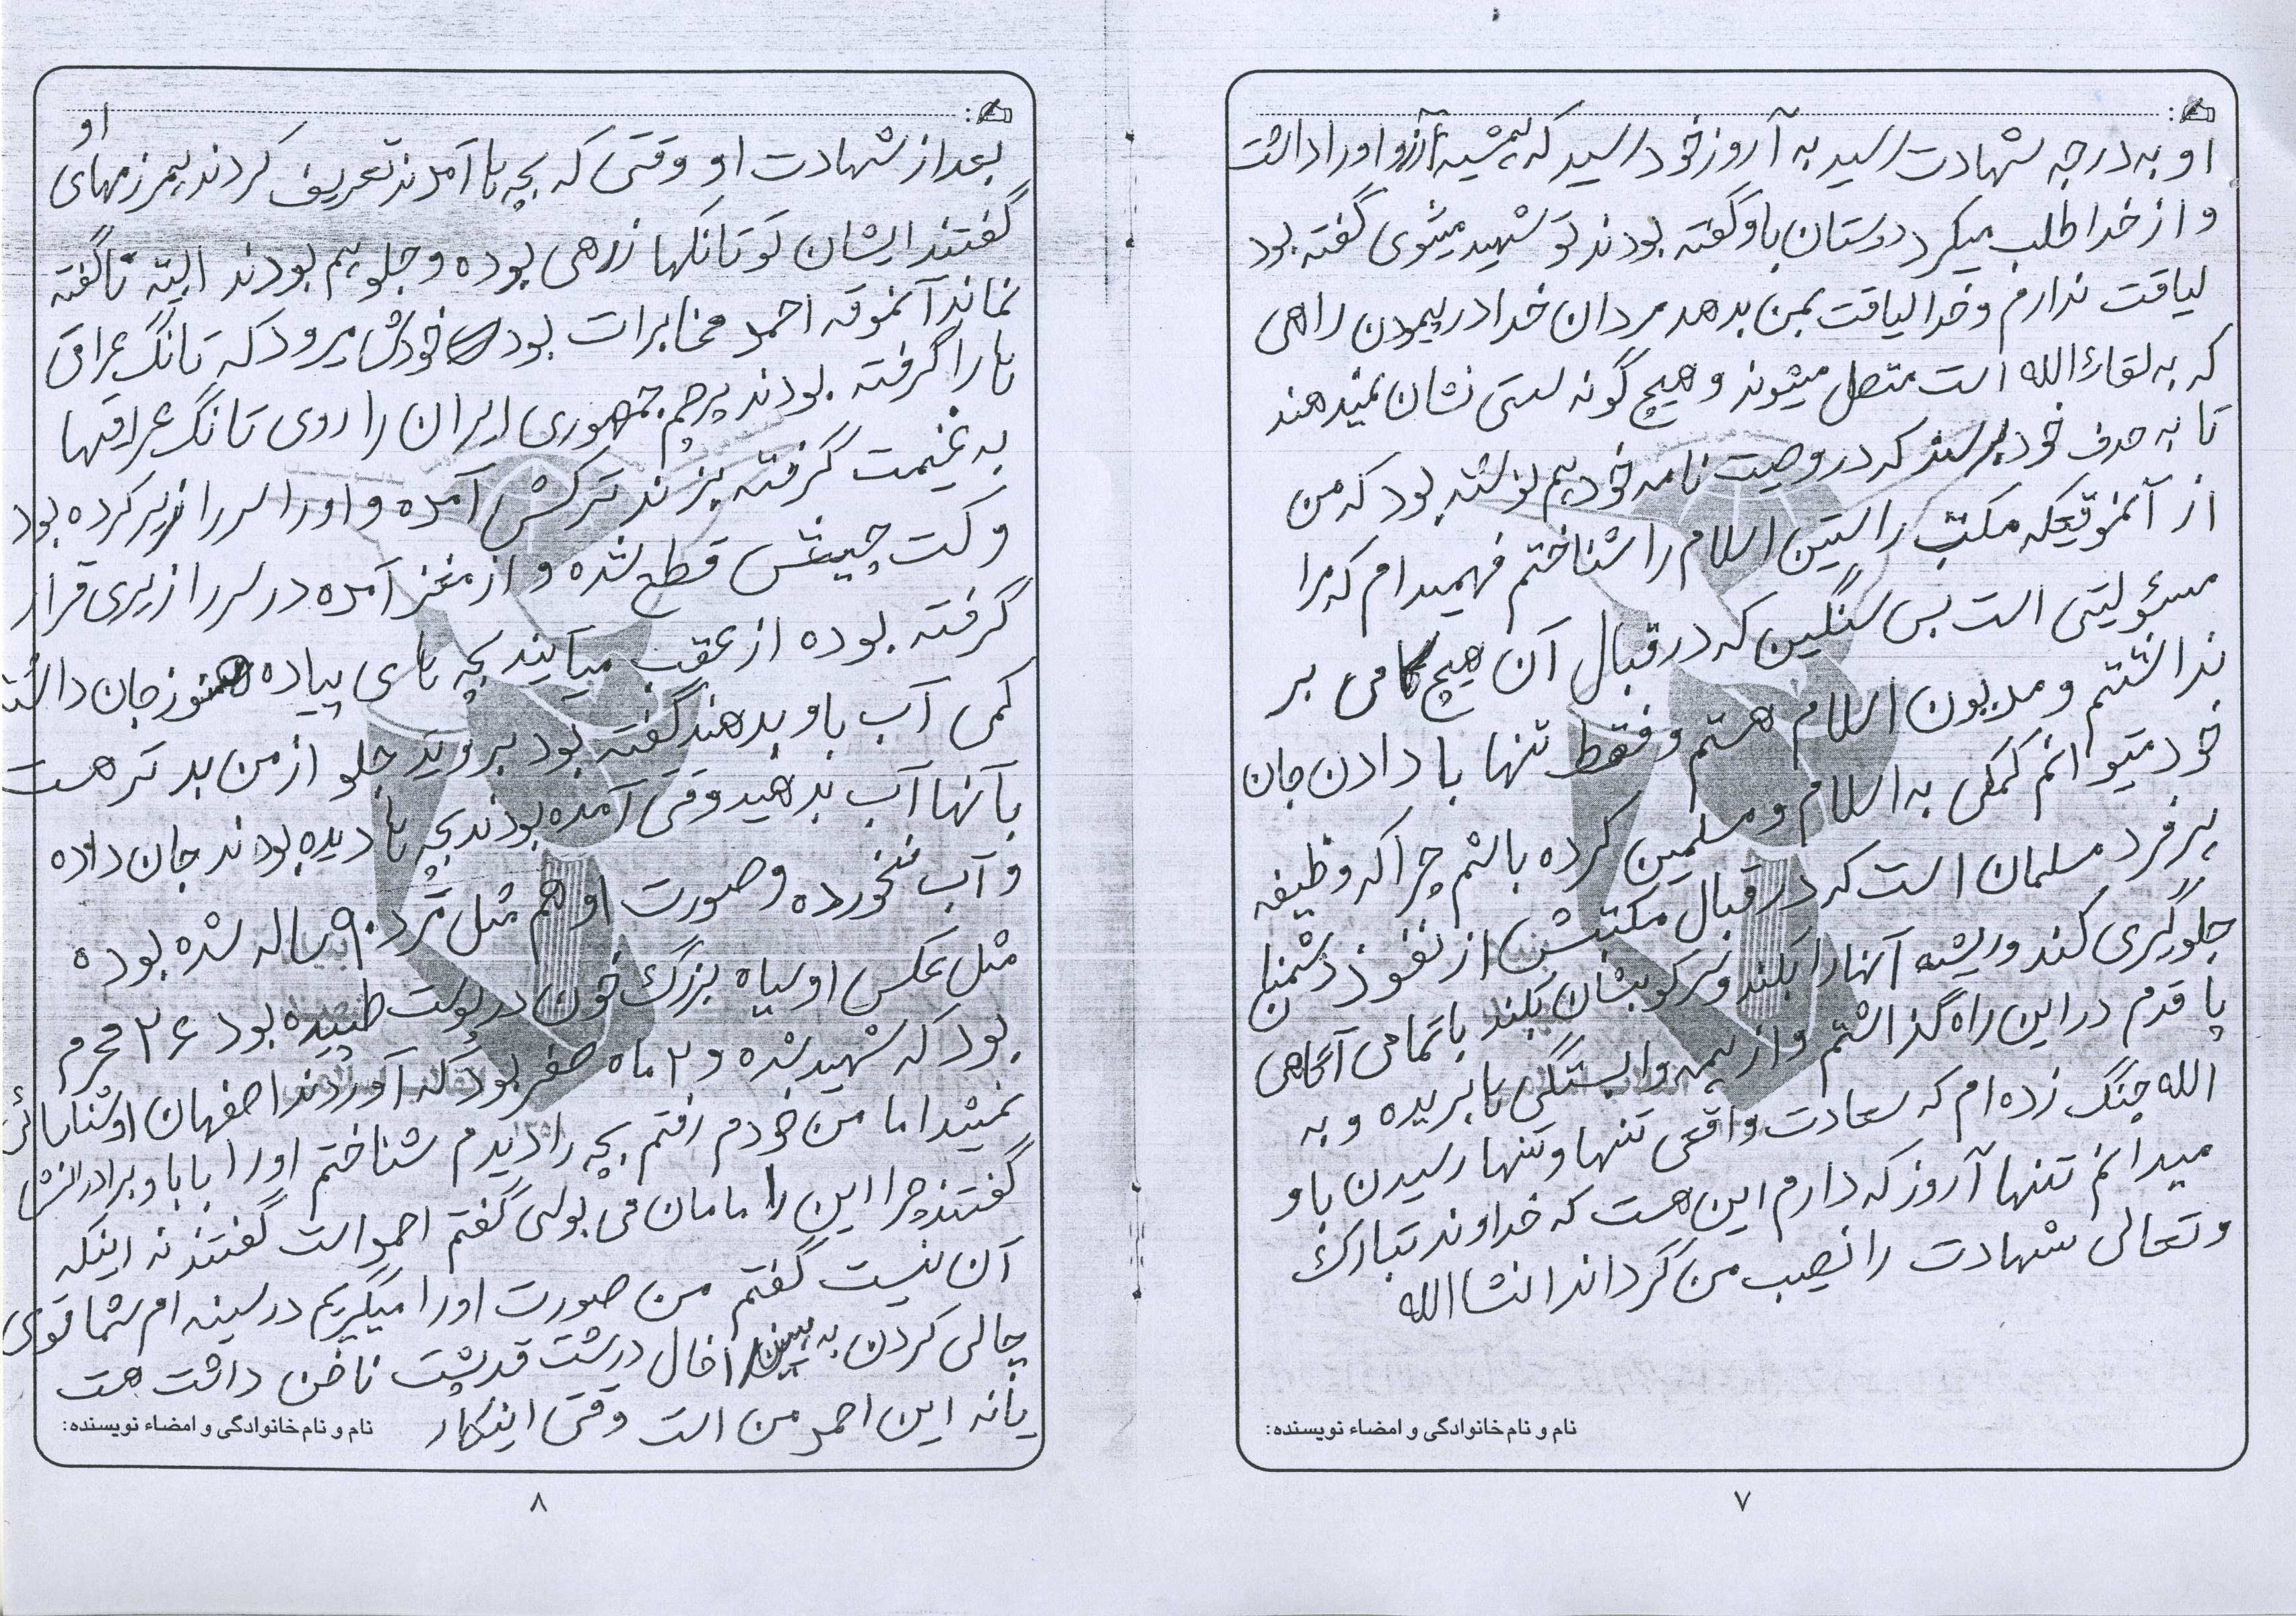 او به درجه شهادت رسید به آروز خود رسید که همیشه آرزو او را داشت
و از خدا طلب میکرد دوستان باو گفته بودند تو شهید میشوی گفته بود
لیاقت ندارم و خدا لیاقت بمن بدهد مردان خدا در پیمودن راهی
که به لقاءالله است متصل میشوند و هیچ گونه سستی نشان نمیدهند
تا به هدف خود برسند که در وصیت نامه خود هم نوشته بود که من
از آنموقعیکه مکتب راستین اسلام را شناختم فهمیدام که مرا
مسئولیتی است بس سنگین که در قبال آن هیچ گامی بر
نداشتم و مدیون اسلام هستم و فقط تنها با دادن جان
خود میتوانم کمکی به اسلام و مسلمین کرده باشم چرا که وظیفه
هر فرد مسلمان است که در قبال مکتبش از نفوذ دشمنان
جلوگیری کند و ریشه آنها را بکند و سرکوبشان بکند با تمامی آگاهی
پا قدم در این راه گذاشتم و از همه وابستگی ها بریده و به
الله چنگ زده ام که سعادت واقعی تنها و تنها رسیدن باو
میدانم تنها آروز که دارم این هست که خداوند تبارک
و تعالی شهادت را نصیب من گرداند انشاالله
نام و نام خانوادگی و امضاء نویسنده:
۷
بعد از شهادت او وقتی که بچه ها آمدند تعریف کردند همرزمهای او
گفتند ایشان تو تانکها زرهی بوده و جلو هم بودند البته ناگفته
نماند آنموقه احمد مخابرات بود خودش میرود که تانک عراقی
ها را گرفته بودند پرچم جمهوری ایران را روی تانک عراقیها
به غنیمت گرفته بزند ترکش آمده و او را سررازیر کرده بود
و کت چپیش قطع شده و از مغز آمده در سررازیری قرار
گرفته بوده از عقب میآیند بچه های پیاده هنوز جان داشت
کمی آب باو بدهند گفته بود بروید جلو از من بدتر هست
بآنها آب بدهید وقتی آمده بودند بچه ها دیده بودند جان داده
و آب نخورده و صورت او هم مثل مرد ۹۰ ساله شده بوده
مثل عکس او سیاه بزرگ خون در پوست طپیده بود ۲۶ محرم
بود که شهید شده و ۲ ماه صفر بود که آوردند اصفهان او شناسائی
نمیشد اما من خودم رفتم بچه را دیدم شناختم او را بابا و برادرانش
گفتند چرا این را مامان می بوسی گفتم احمد است گفتند نه اینکه
آن نیست گفتم من صورت او را میگیریم در سینه ام شما توی
چالی کردن به بینید خال درشت قد پشت ناخن داشت هست
یا نه این احمد من است وقتی اینکار
نام و نام خانوادگی و امضاء نویسنده:
۸